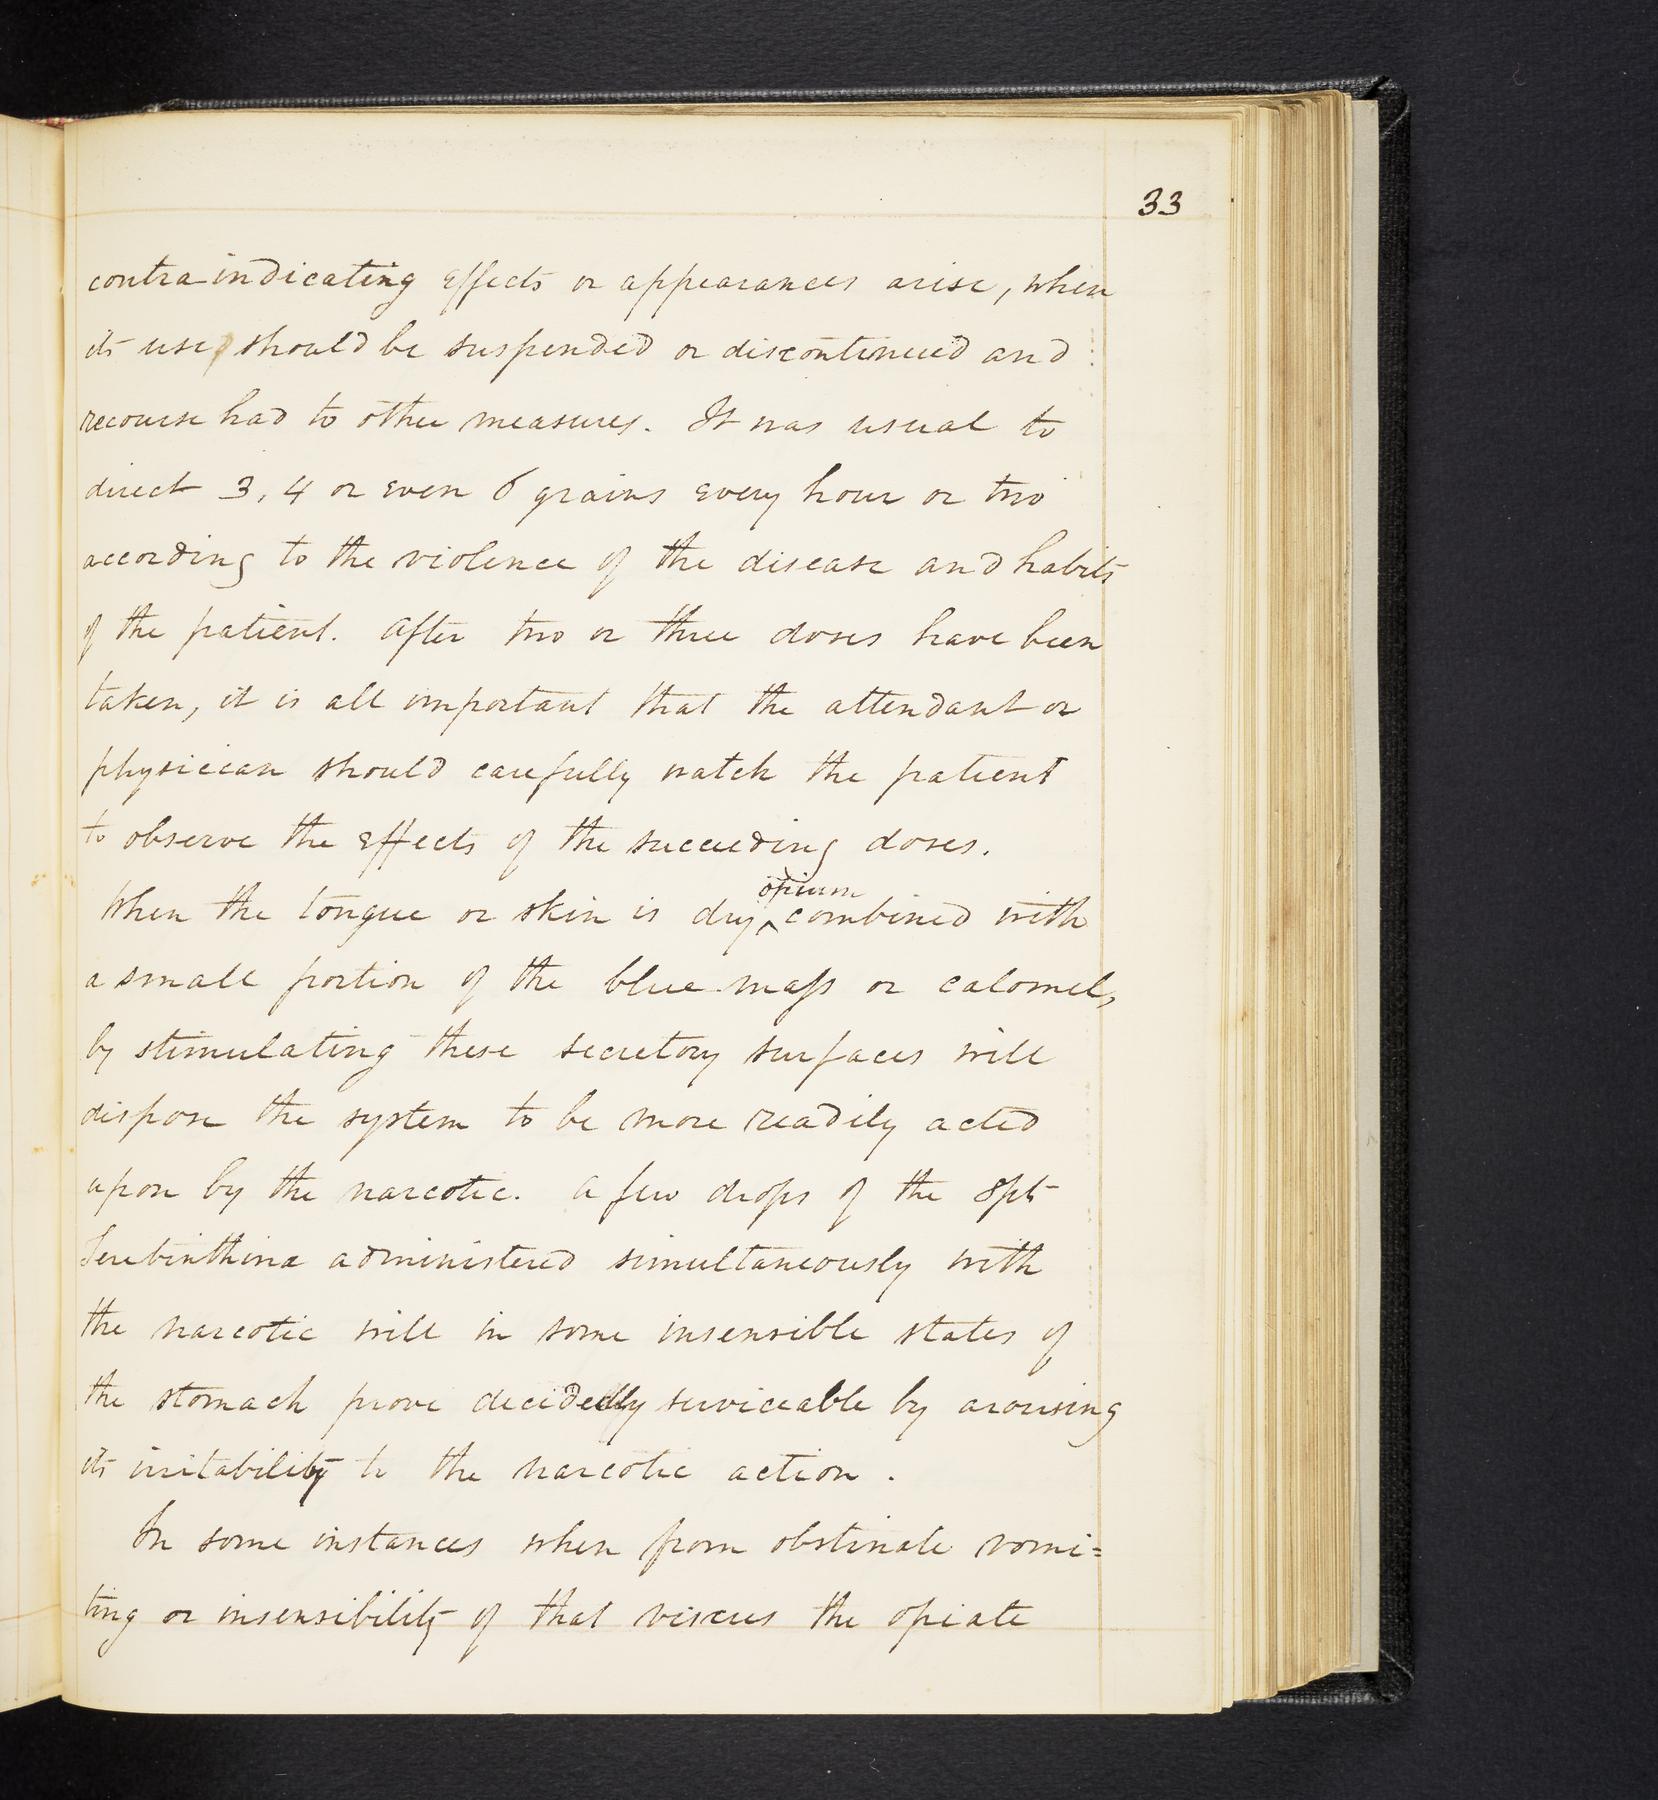 33
contra-indicating effects or appearances arise, when
its use should be suspended or discontinued and
recourse had to other measures. It was usual to
direct 3, 4 or even 6 grains every hour or two
according to the violence of the disease and habits
of the patient. After two or three doses have been
taken, it is all important that the attendant or
physician should carefully watch the patient
to observe the effects of the succeeding doses.
When the tongue or skin is dry, ^opium combined with
a small portion of the blue mass or calomel,
by stimulating these secretory surfaces will
dispose the system to be more readily acted
upon by the narcotic. A few drops of the Spts
Terebinthina administered simultaneously with
the narcotic will in some insensible states of
the stomach prove decidedly serviceable by arousing
its irritability to the narcotic action.
In some instances when from obstinate vomi=
ting or insensibility of that viscus the opiate